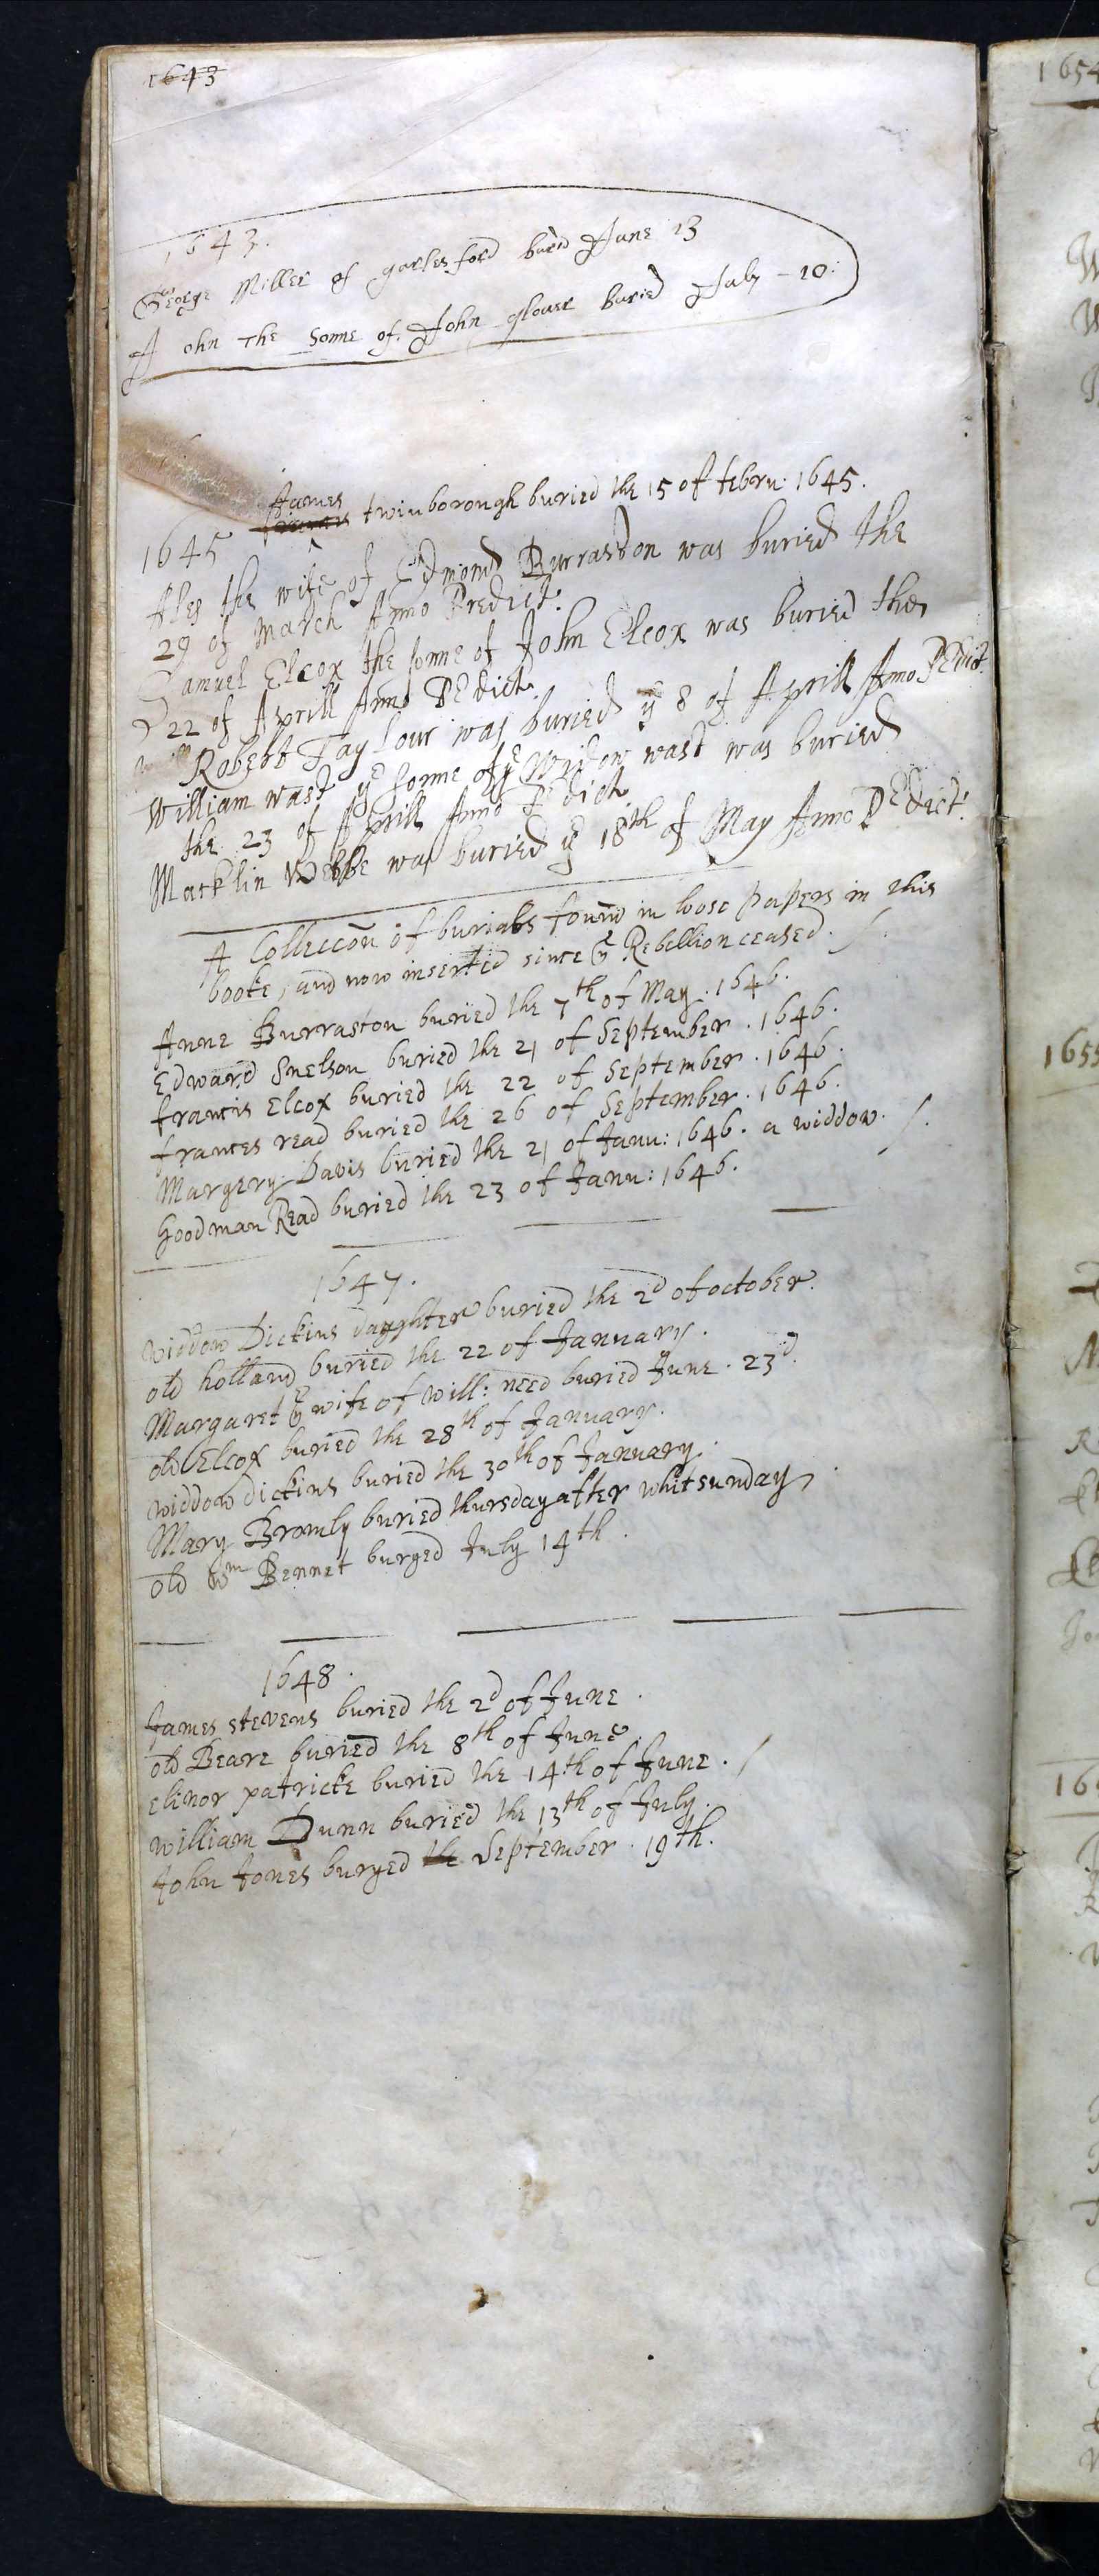 1643
1643.
George Miller of garlesford buried June 13
John The Sonne of John glover buried July - 10:
James
twinborough buried the 15 of febru: 1645.
1645
Ales the wife of Edmond Burraston was buried the
29 of March Anno Predict:
Samuel Elcox the sonne of John Elcox was buried the
22 of Aprill Anno PEdict
Robert Taylour was buried ye 8 of Aprill Anno PEdict
William wast ye sonne of ye Widow wast was buried
the 23 of Aprill Anno PEdict
Macklin Webbe was buried ye 18th of May Anno PEdict:
A Colleccon of burialls found in loose papers in this
booke, and now inserted since ye Rebellion ceased.
Anne Burraston buried the 7th of May. 1646.
Edward Snelson buried the 21 of September. 1646.
francis Elcox buried the 22 of September. 1646.
frances read buried the 26 of September. 1646.
Margery Davis buried the 21 of Janu: 1646. a widdow.
Goodman Read buried the 23 of Janu: 1646.
1647.
widdow Dickins daughter buried the 2d of october.
old holland buried the 22 of January.
Margaret ye wife of will: need buried June. 23d.
old Elcox buried the 28th of January.
widdow dickins buried the 30th of January.
Mary Bromly buried thursday after whitsunday
old Wm Bennet buryed July 14th.
1648.
James stevens buried the 2d of June.
old Beare buried the 8th of June.
elinor patricke buried the 14th of June.
william Dunn buried the 13th of July.
John Jones buryed the September. 19th.
1654
1655